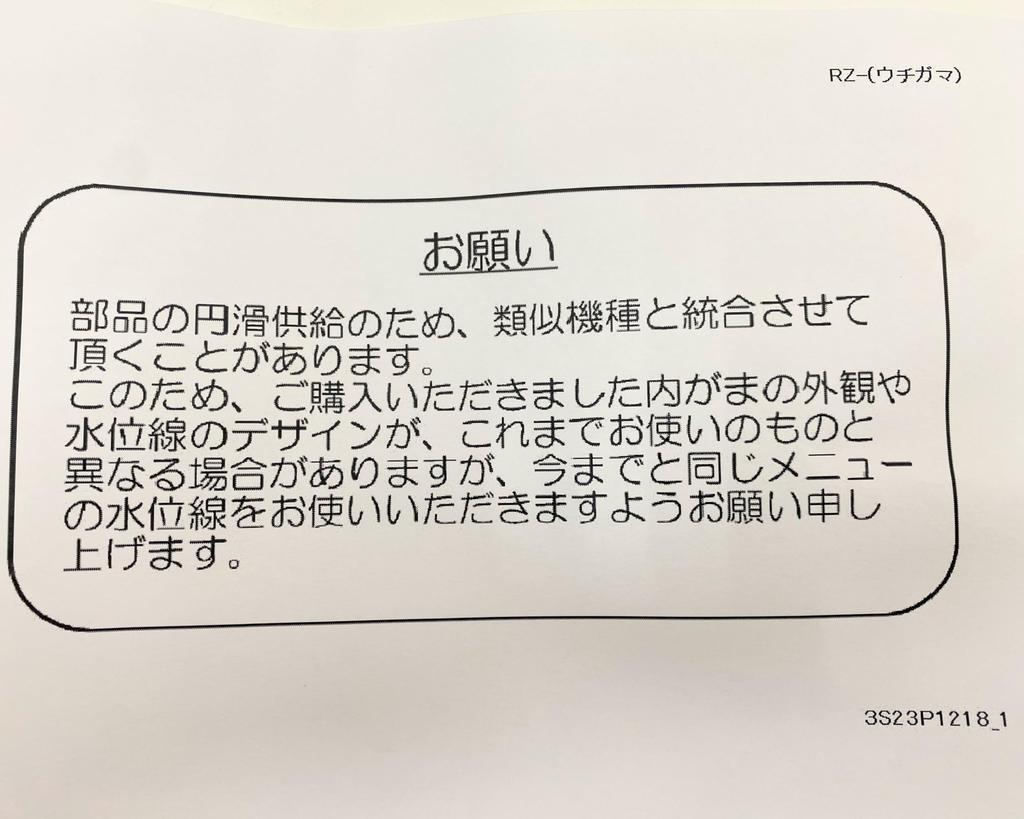 RZ-(ウチガマ)
お願い
部品の円滑供給のため、類似機種と統合させて
頂くことがあります。
このため、ご購入いただきました内がまの外観や
水位線のデザインが、これまでお使いのものと
異なる場合がありますが、今までと同じメニュー
の水位線をお使いいただきますようお願い申し
上げます。
3S23P1218_1